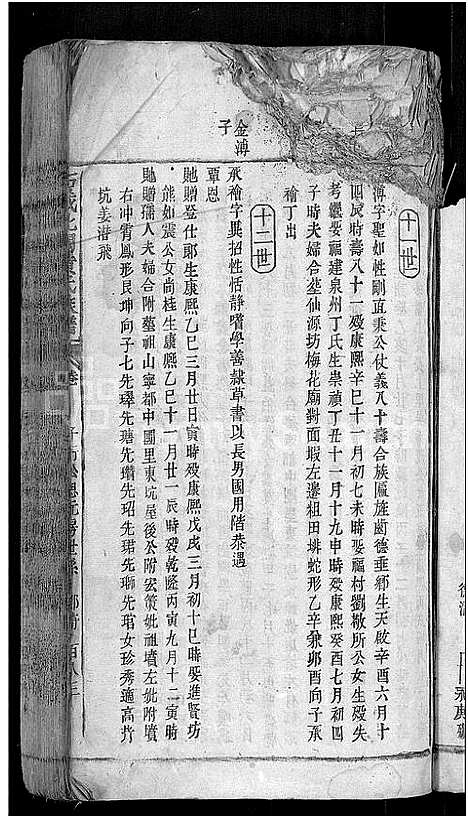 十一世
溥字聖如性剛直秉公仗義八十壽合族區旌齒德垂鄉生天啟辛酉六月十
四戌時壽八十一歿康熙辛巳十一月初七未時娶福村劉敬所公女生歿失
考繼娶福建泉州丁氏生崇禎丁丑十一月十九申時歿康熙癸酉七月初四
子時夫婦合塟仙源坊梅花廟對面塅左邊租田排蛇形乙辛兼卯酉向子承
禬丁出
十二世
金溥
子
承禬字異招性恬靜嗜學善隸草書以長男國用階恭遇
覃恩
貤贈登仕郎生康熙乙巳三月廿日寅時歿康熙戊戌三月初十巳時娶進賢坊
熊如震公女尚桂生康熙乙巳十一月廿一辰時歿乾隆丙寅九月十二寅時
貤贈孺人夫婦合附塟祖山寧都中團里東坑屋後公附宏策妣祖墳左妣附墳
右冲霄鳳形艮坤向子七先璪先瑭先瓚先玿先珺先瑡先琯女珍秀適高圲
坑姜潛飛
族譜
卷
世系